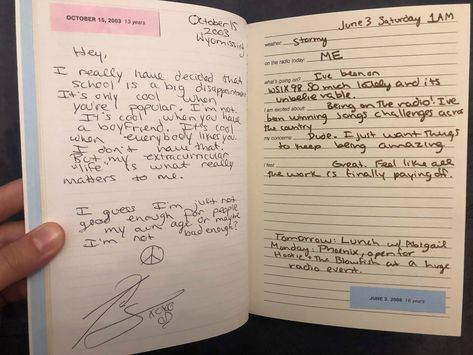 OCTOBER 15, 2003 13 years
October 15
2003
Wyomissing
Hey,
I really have decided that
school is a big disappointment
It's only cool when
you're popular. I'm not.
It's cool when you have
a boyfriend. It's cool
when everybody likes you.
I don't have that.
But my extracurricular
"life" is what really
matters to me.
I guess I'm just not
good enough for people
my own age or maybe
I'm not bad enough?
xoxo
June 3 Saturday 1AM
weather: Stormy
on the radio today: ME
what's going on? I've been on
WSIX 98 so much lately and its
unbelievable.
I am excited about: Being on the radio! I've
been winning songs challenges across
the country
my concerns: Dude. I just want things
to keep being amazing
I feel Great. Feel like all
the work is finally paying off.
Tomorrow: Lunch w/ Abigail
Monday: Phoenix, open for
Hootie & The Blowfish at a huge
radio event.
JUNE 3, 2006 16 years